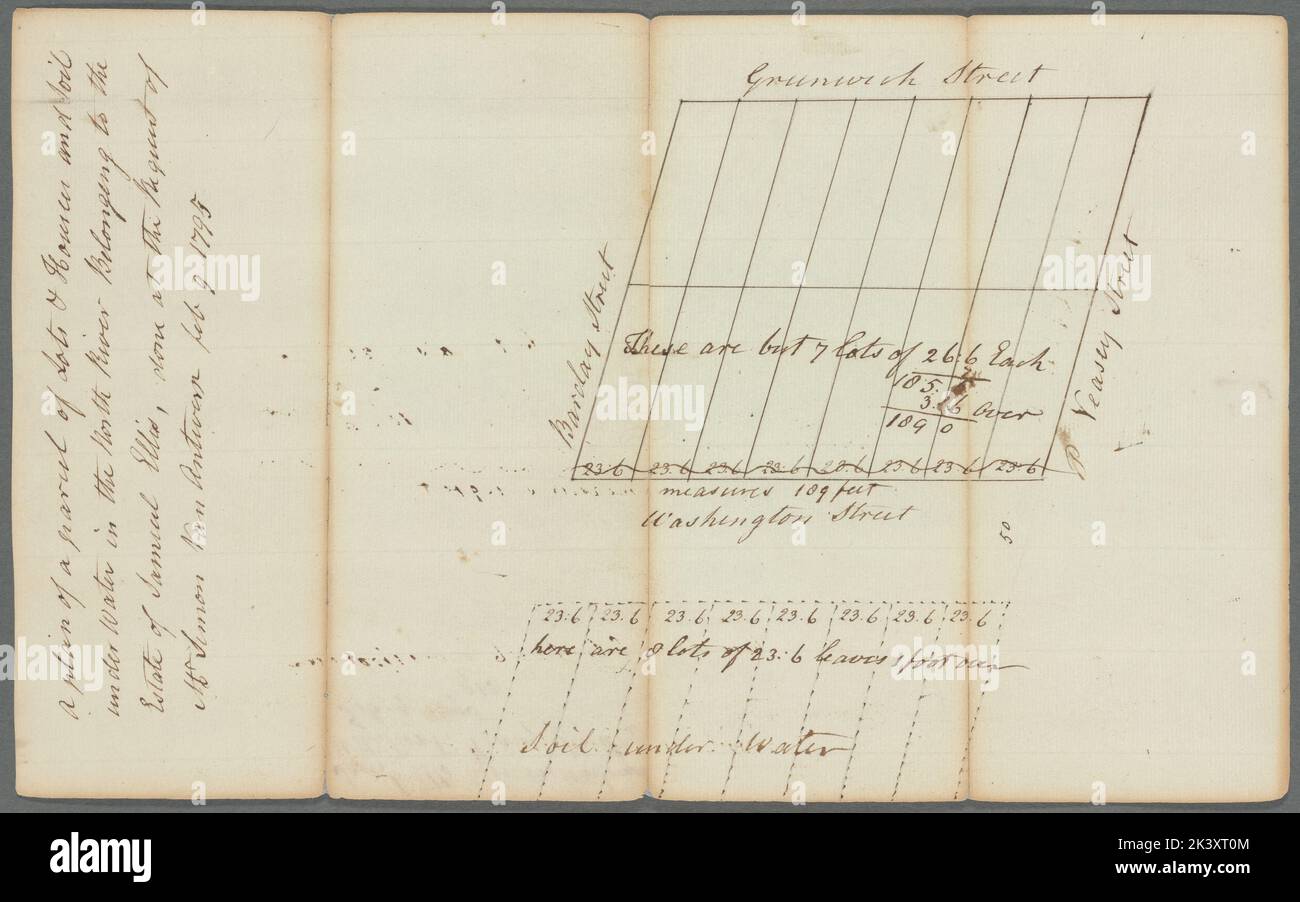 a plan of a parcel of Lots & Houses and Soil
under Water in the North River Belonging to the
Estate of Samuel Ellis, don at the Request of
Mr Simon Van Antwerp feb 9 1795
Greenwich Street
Barclay Street
P Veasey Street
These are but 7 lots of 26:6 Each
7
185.6
3.6 over
189 0
23.6 23.6 23.6 23.6 23.6 23.6 23.6 23.6
measures 189 feet
Washington Street
50
23.6 23.6 23.6 23.6 23.6 23.6 23.6 23.6
here are 8 lots of 23:6 leaves 1 foot over
Soil under Water
alamy
Image ID: 2K3XT0M
www.alamy.com